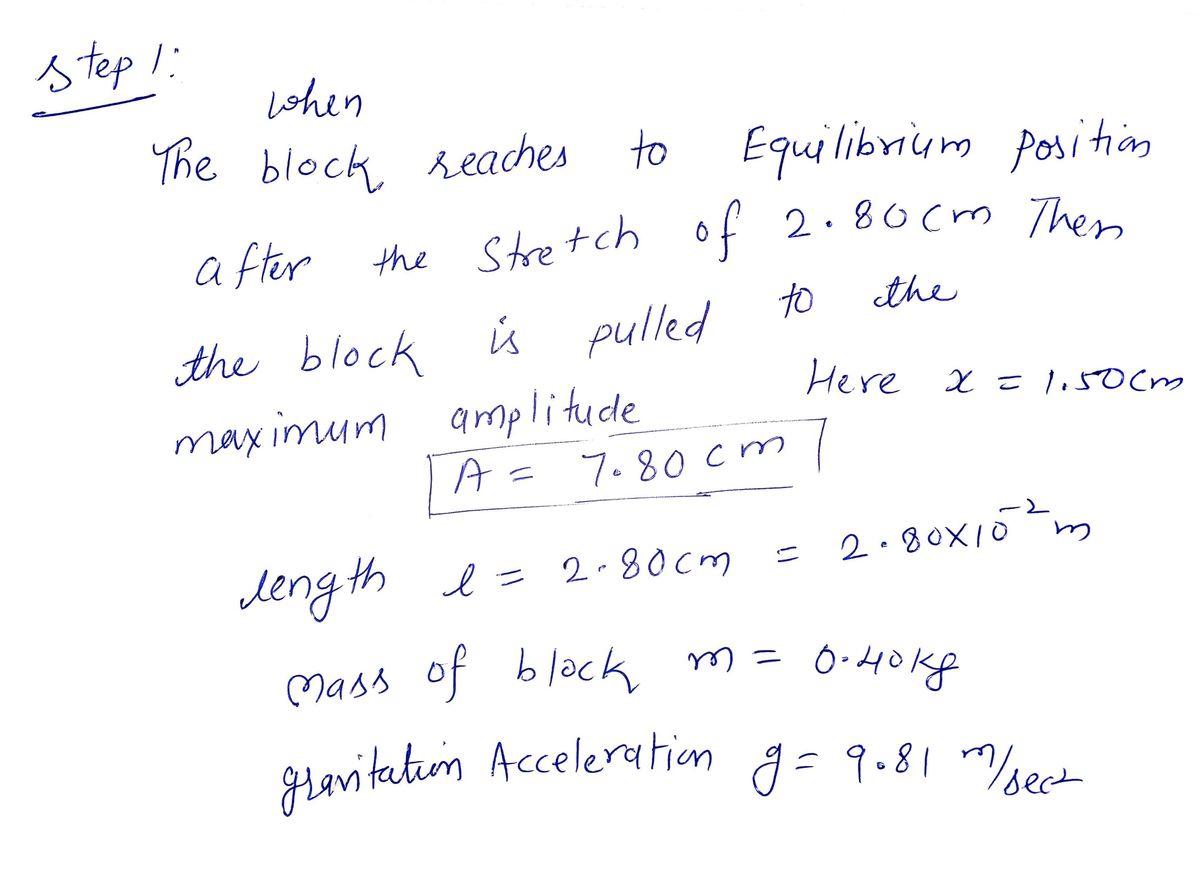 Step 1:
when
The block, reaches to Equilibrium position
after the stretch of 2.80cm Then
the block is pulled to the
maximum amplitude Here x = 1.50cm
A = 7.80 cm
length l = 2.80cm = 2.80X10⁻² m
Mass of block m = 0.40kg
gravitation Acceleration g = 9.81 m/sec2